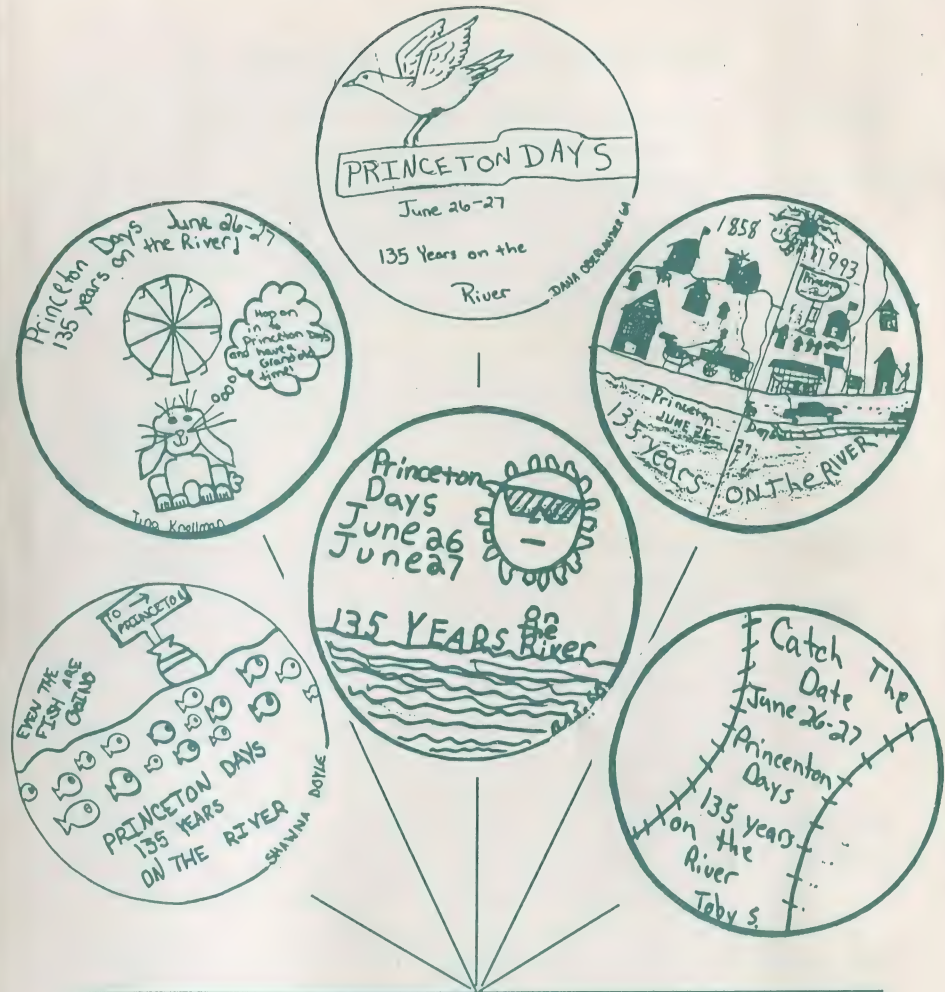 PRINCETON DAYS
June 26-27
135 Years on the
River
DANA OBERLANDER 6A
Princeton Days June 26-27
135 years on the River!
Hop on
in to
Princeton Days
and have a
Grand old
time!
Tina Knollman
1858
1993
Princeton
Princeton
JUNE 26-
Days
27
135 years
ON The RIVER
Princeton
Days
June 26
June 27
135 YEARS on
the
River
TO
PRINCETON
EVEN THE
FISH ARE
GOING
PRINCETON DAYS
135 YEARS
ON THE RIVER
SHAWNA DOYLE
Catch The
Date
June 26-27
Princenton
Days
135 years
on the
River
Toby S.